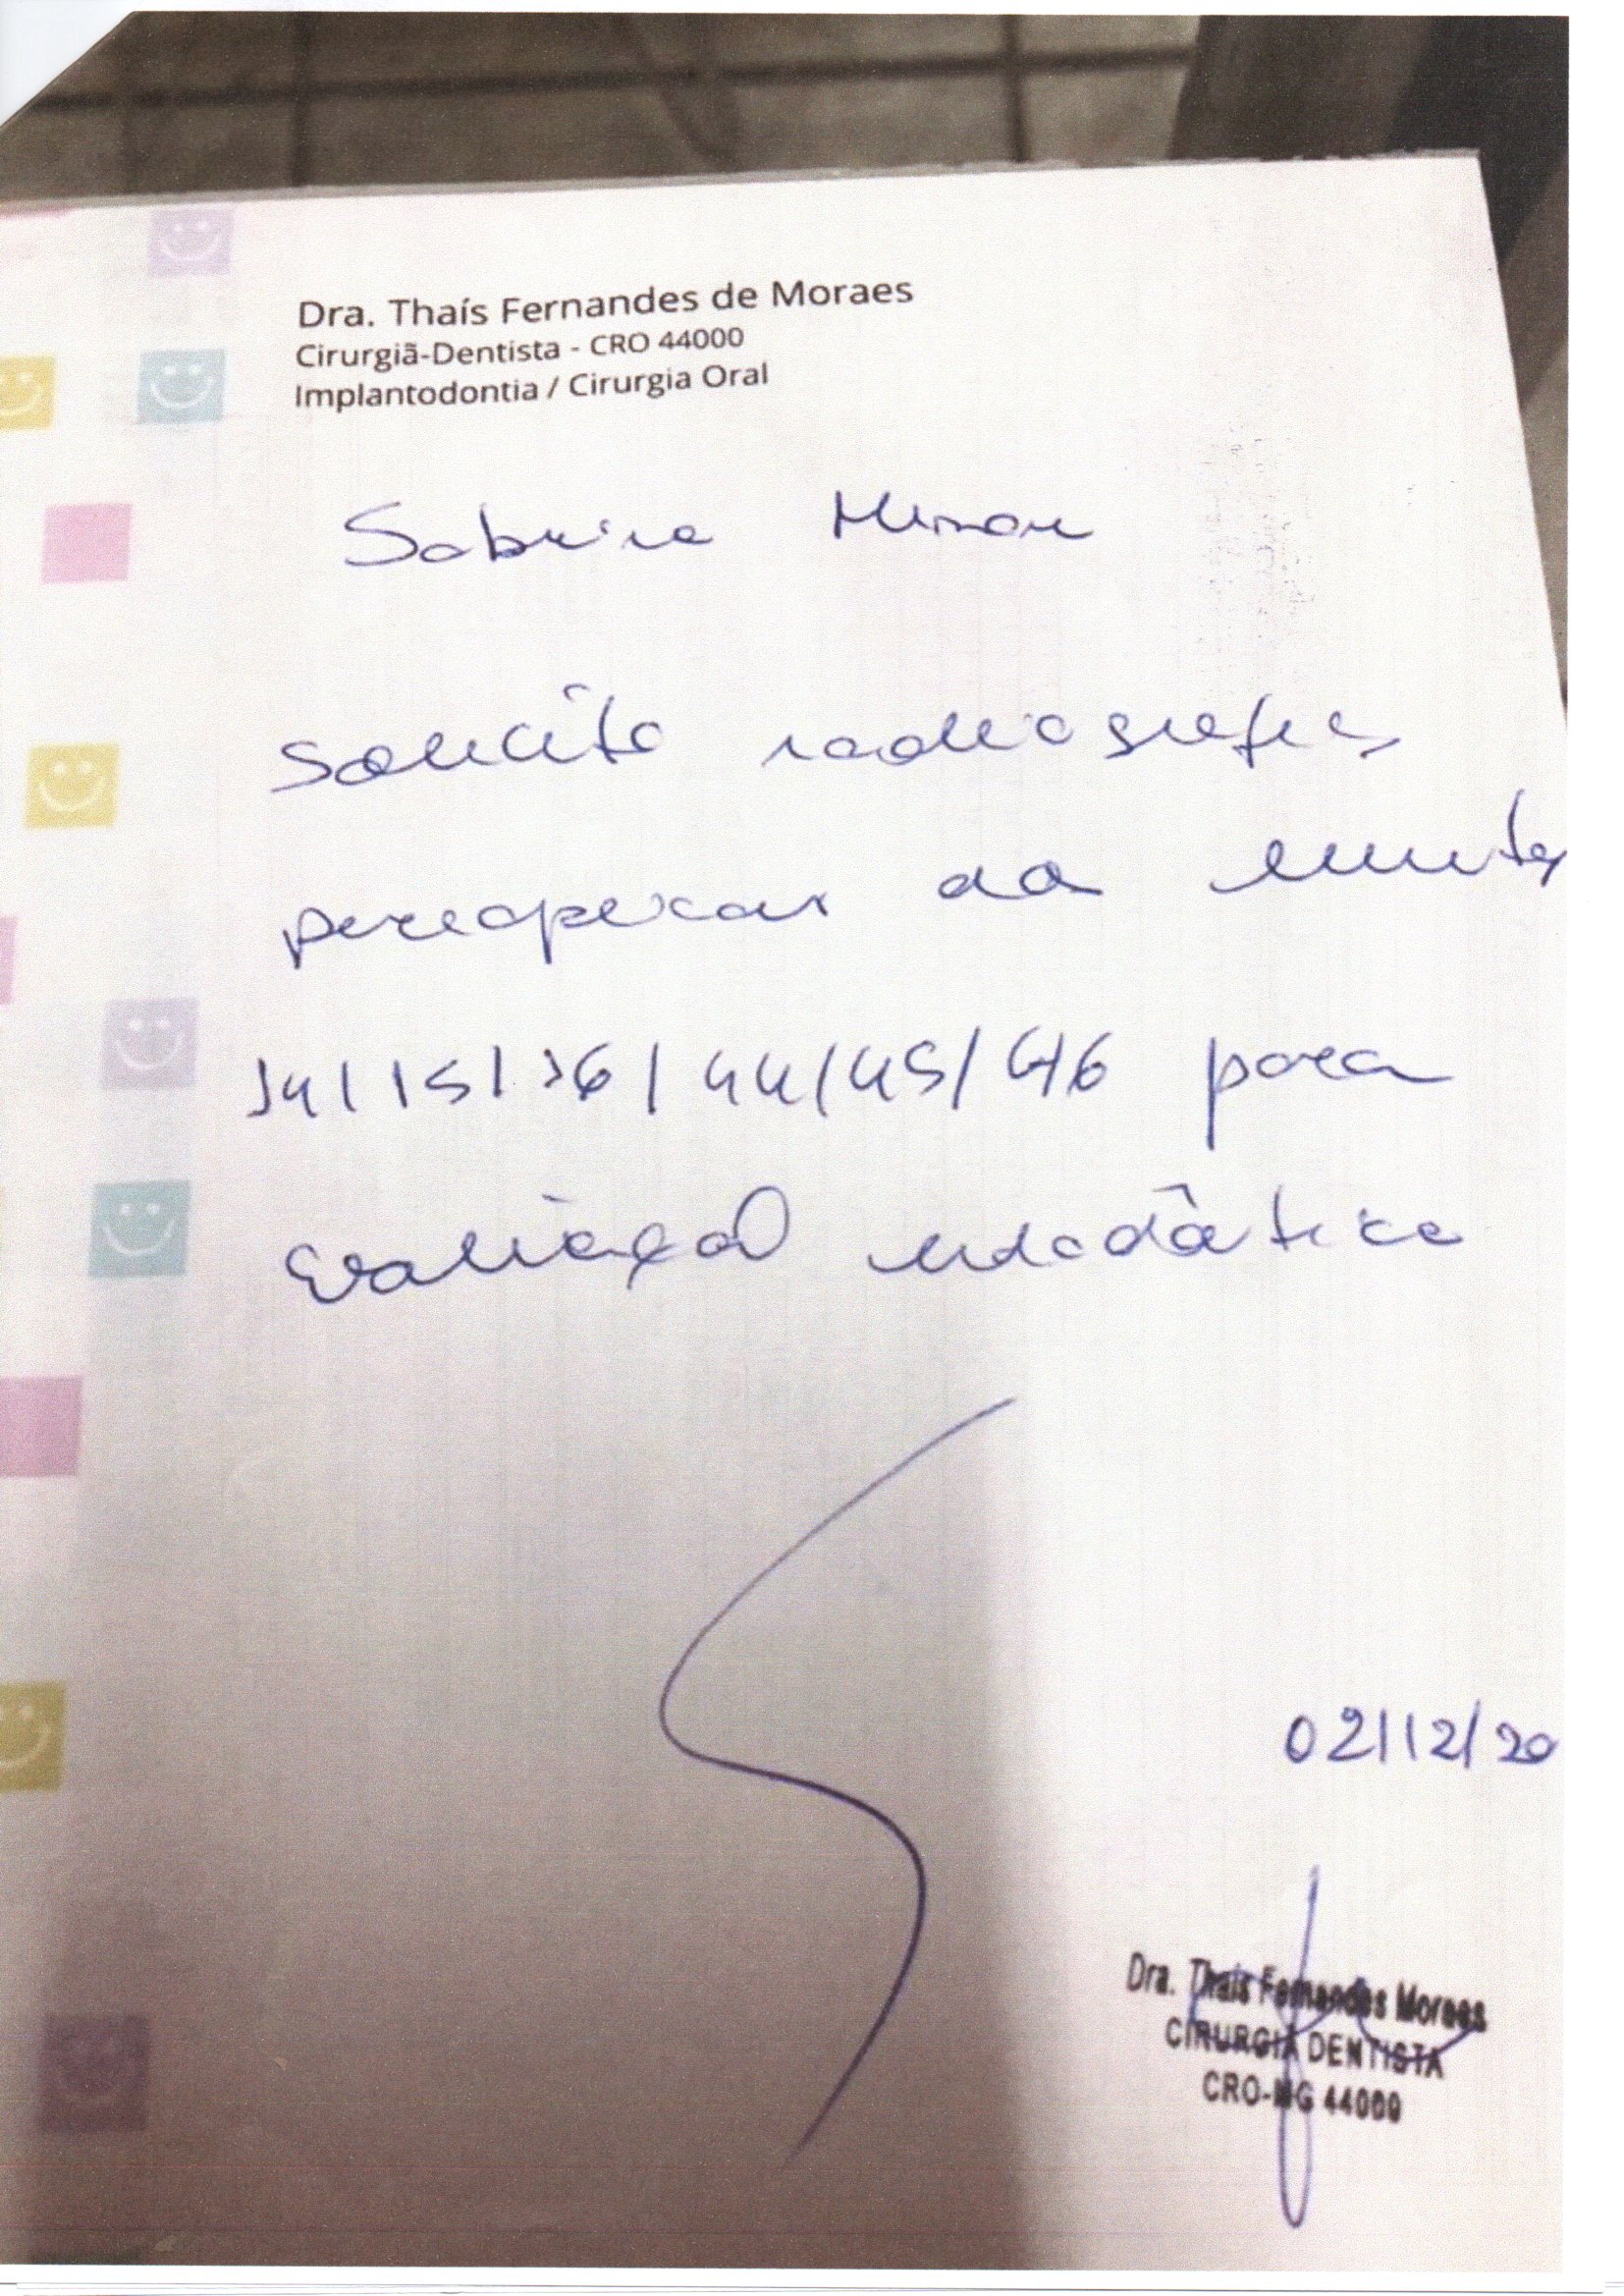 Dra. Thaís Fernandes de Moraes
Cirurgiã-Dentista - CRO 44000
Implantodontia / Cirurgia Oral
Sabrina
Solicito radiografias
periapicais da
14/15/16/44/45/46 para
avaliação endodôntica
02/12/20
Dra. Thais Fernandes Moraes
CIRURGIÃ DENTISTA
CRO-MG 44000